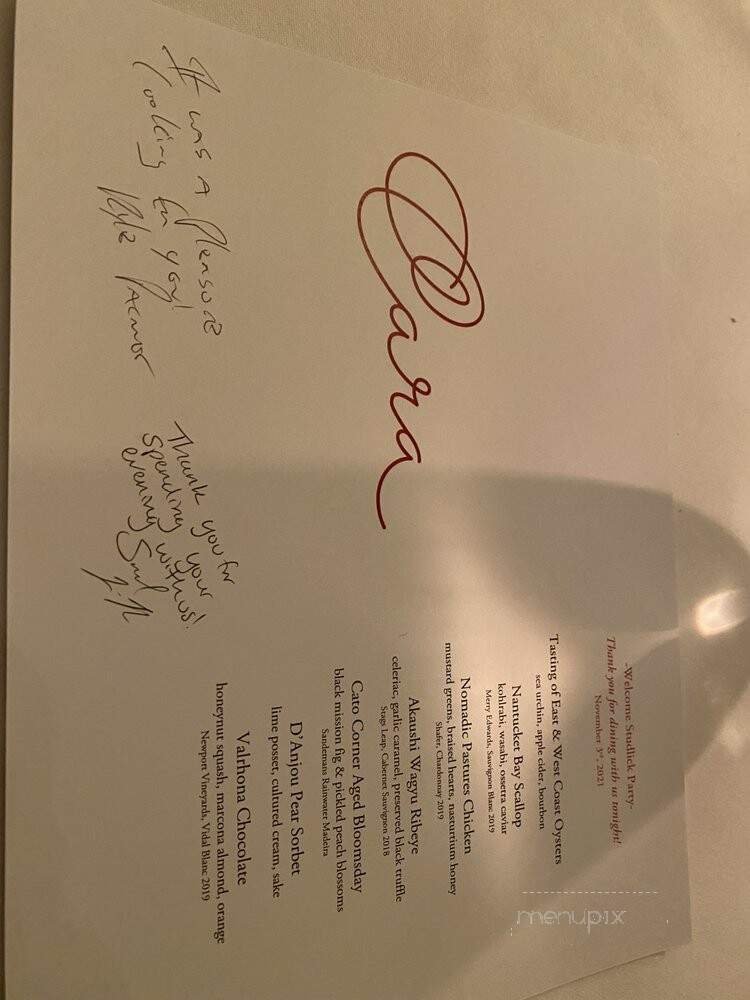 Cara
It was A Pleasure
Cooking for you!
Kyle
Thank you for
spending your
evening with us!
-Welcome Studlick Party-
Thank you for dining with us tonight!
November 3rd, 2021
Tasting of East & West Coast Oysters
sea urchin, apple cider, bourbon
Nantucket Bay Scallop
kohlrabi, wasabi, ossetra caviar
Merry Edwards, Sauvignon Blanc 2019
Nomadic Pastures Chicken
mustard greens, braised hearts, nasturtium honey
Shafer, Chardonnay 2019
Akaushi Wagyu Ribeye
celeriac, garlic caramel, preserved black truffle
Stags Leap, Cabernet Sauvignon 2018
Cato Corner Aged Bloomsday
black mission fig & pickled peach blossoms
Sandemans Rainwater Madeira
D'Anjou Pear Sorbet
lime posset, cultured cream, sake
Valrhona Chocolate
honeynut squash, marcona almond, orange
Newport Vineyards, Vidal Blanc 2019
menupix